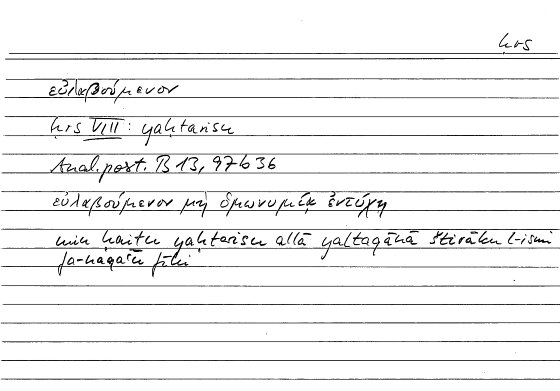 ḥrs
εὐλαβούμενον
ḥrs VIII: yaḥtarisu
Anal. post. B 13, 97b36
εὐλαβούμενον μὴ ὁμωνυμίᾳ ἐντύχῃ
min ḥaiṯu yaḥtarisu allā yaltaqiya štirāku l-ismi
fa-